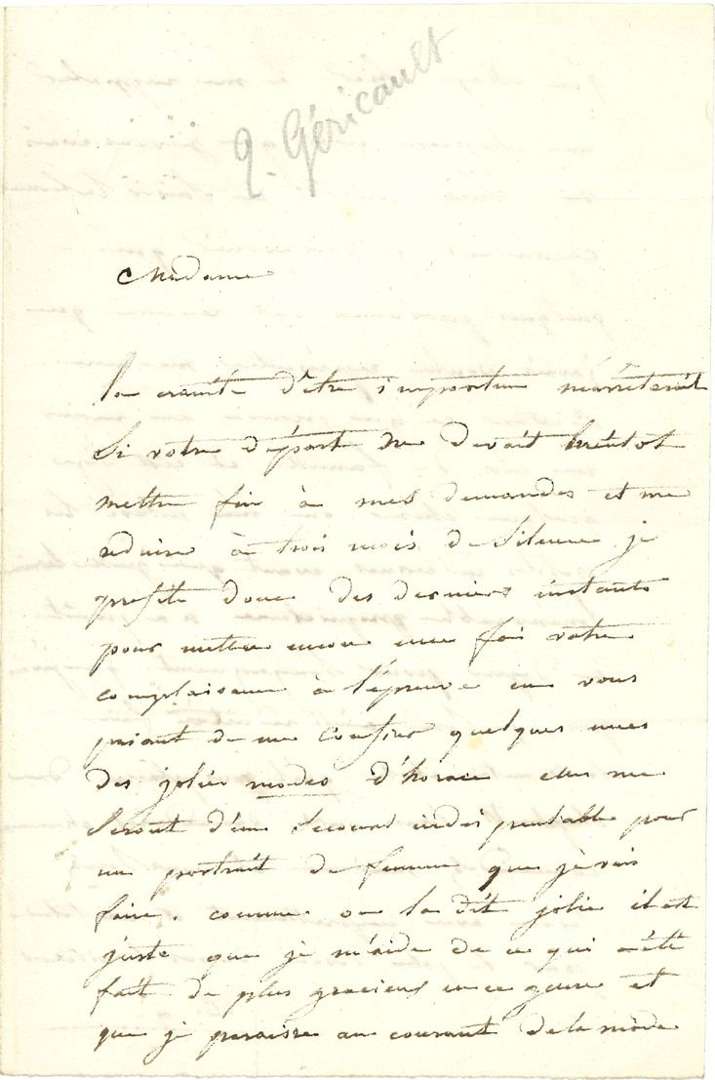 Géricault
Madame
la crainte d'être importun m'arrêterait
Si votre départ ne devait bientôt
mettre fin à mes demandes et me
reduire à trois mois de Silence je
profite donc des derniers instants
pour mettre encore une fois votre
complaisance à l'épreuve en vous
priant de me confier quelques unes
des jolies modes d'horace elles me
Seront d'un Secours indispensable pour
un portrait de femme que je vais
faire. comme on la dit jolie il est
juste que je m'aide de ce qui a été
fait de plus gracieux en ce genre et
que je paraisse au courant de la mode